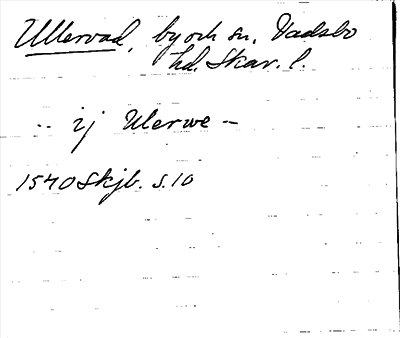 Ullervad, by och sn. Vadsbo
hd. Skar. l.
-- ij Ulerwe --
1540 Skjb. s. 10